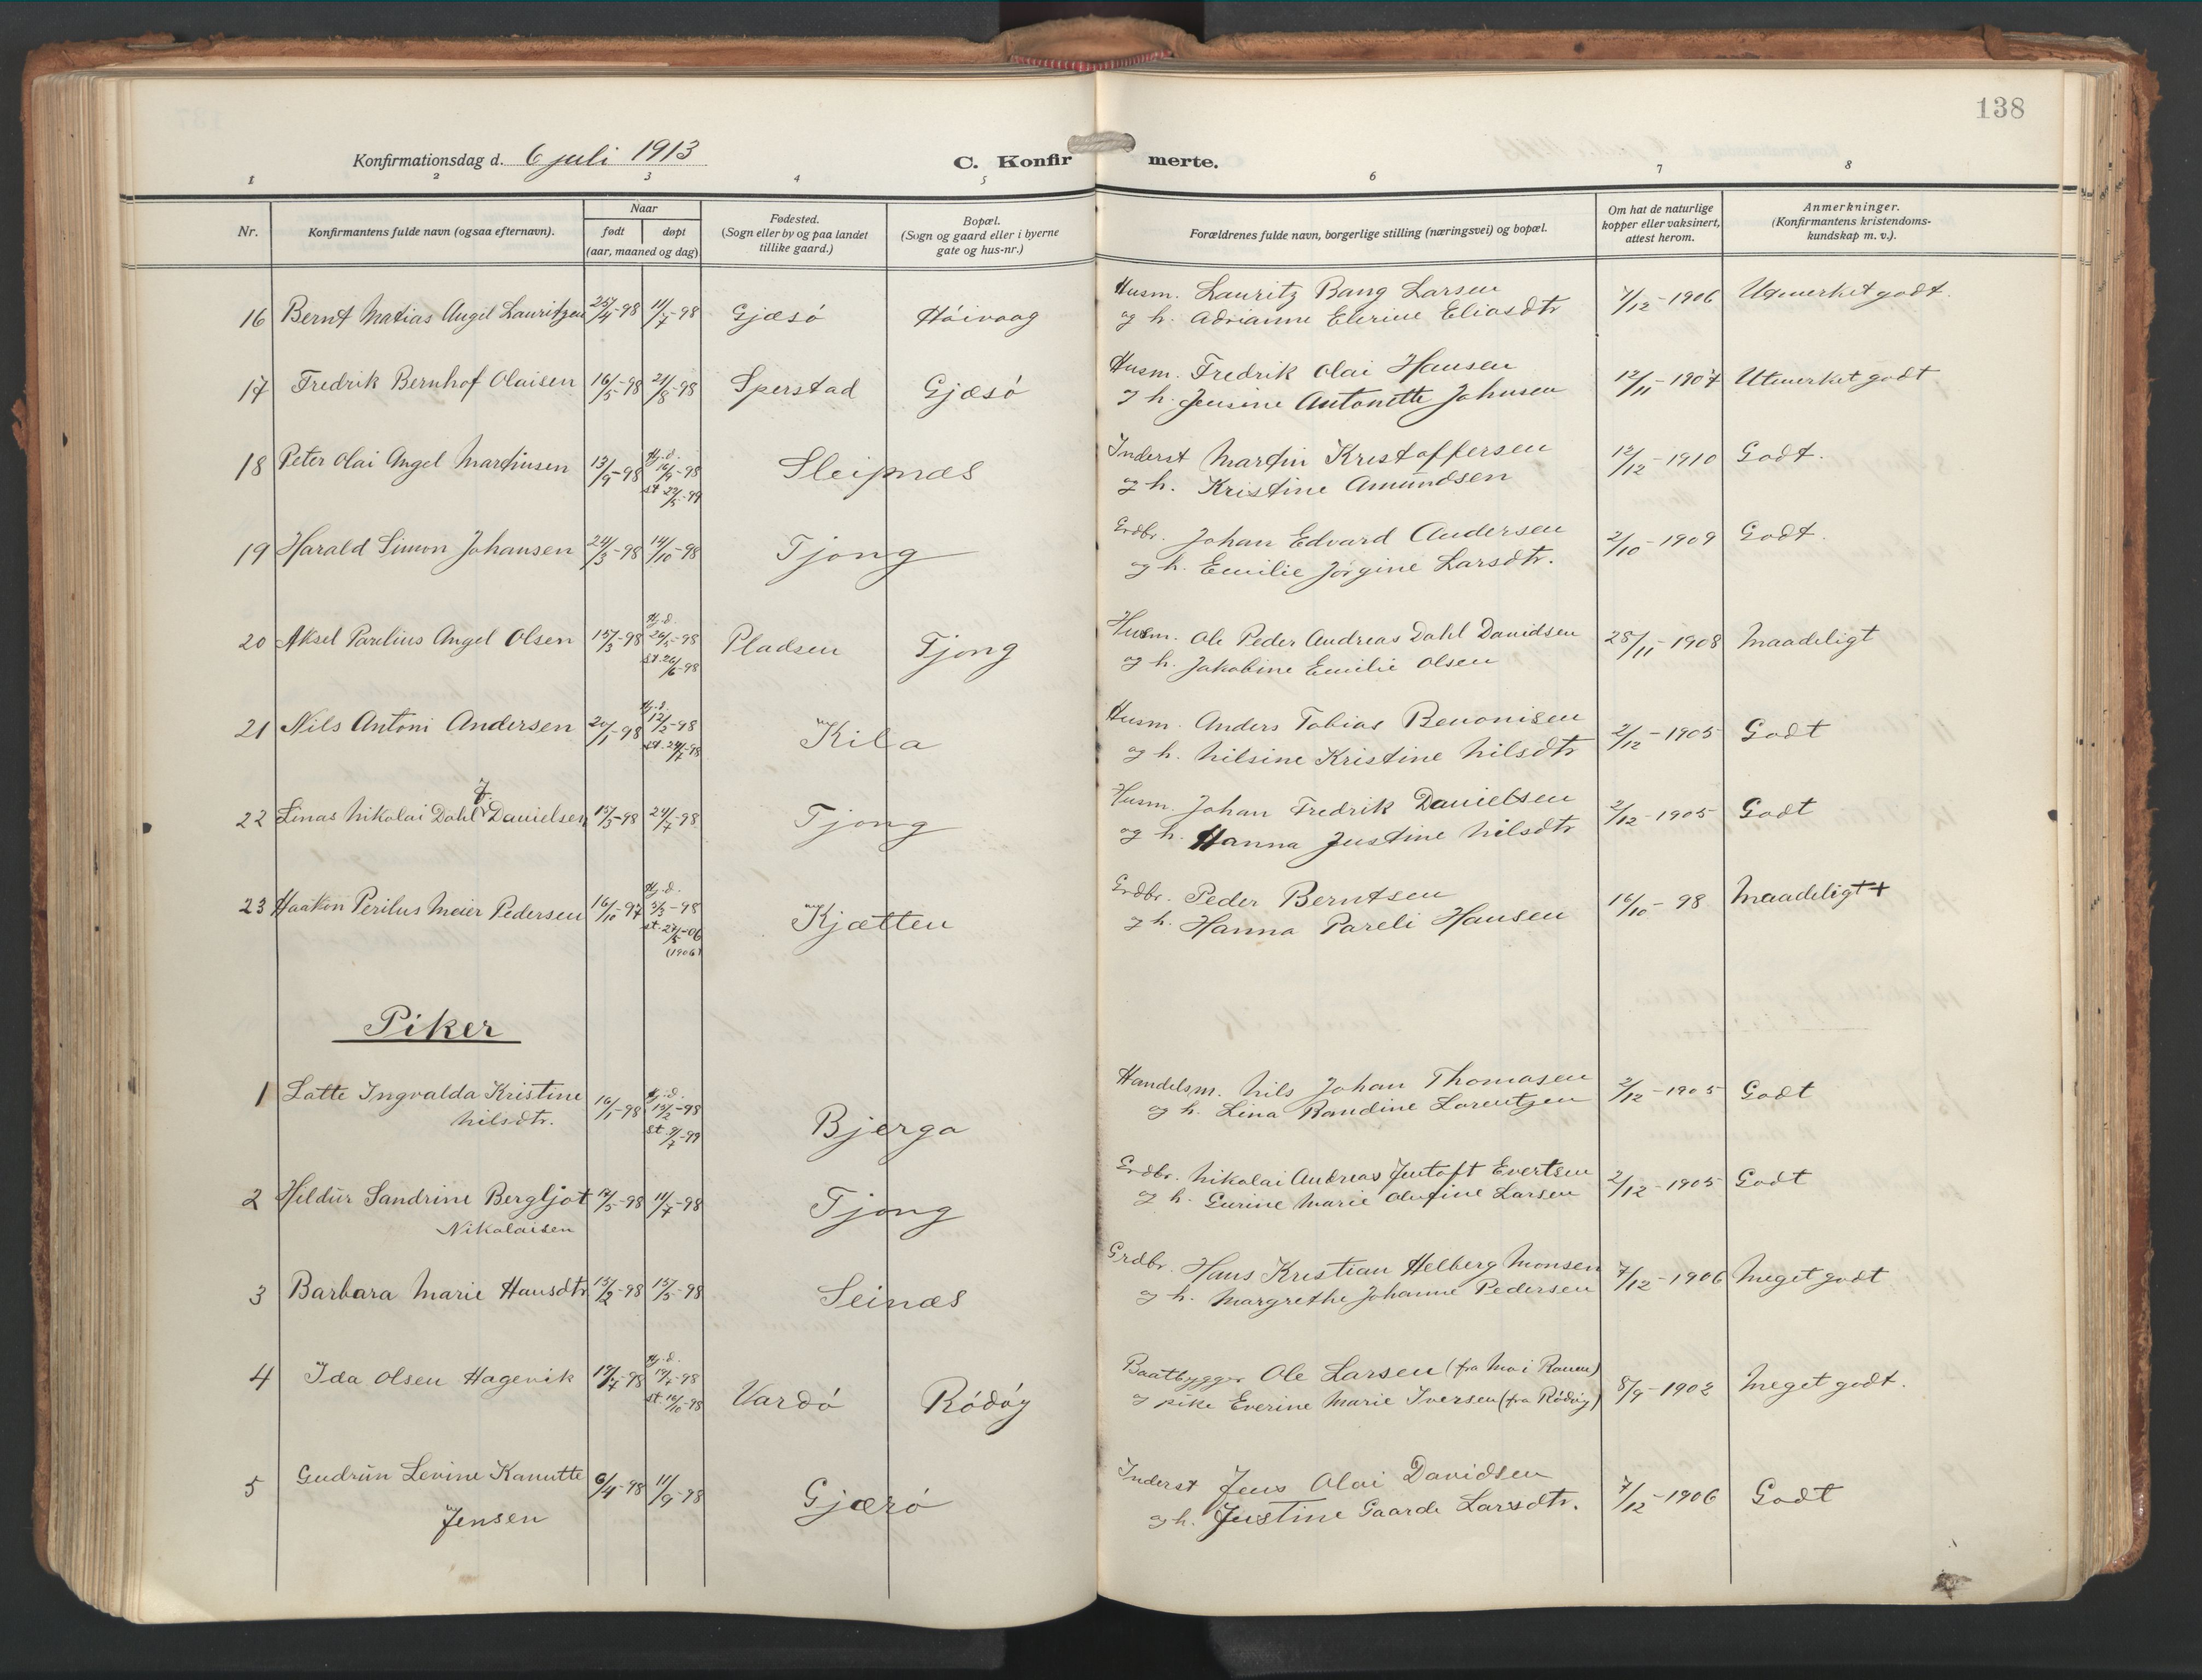 138
Konfirmationsdag d. 6 juli 1913
C. Konfirmerte.
1 2 3 4 5 6 7 8
Nr.
Konfirmantens fulde navn (ogsaa efternavn).
Naar
født døpt
(aar, maaned og dag)
Fødested.
(Sogn eller by og paa landet
tillike gaard.)
Bopæl.
(Sogn og gaard eller i byerne
gate og hus-nr.)
Forældrenes fulde navn, borgerlige stilling (næringsvei) og bopæl.
Om hat de naturlige
kopper eller vaksinert,
attest herom.
Anmerkninger.
(Konfirmantens kristendoms-
kundskap m. v.).
16 Bernt Matias Angel Lauritzen 25/4-98 11/7-98 Gjæsö Höivaag
Husm. Lauritz Bang Larsen
og h. Adrianne Elerine Eliasdtr
7/12-1906 Utmerket godt.
17 Fredrik Bernhof Olaisen 16/5-98 21/8-98 Sperstad Gjæsö
Husm. Fredrik Olai Hansen
og h. Jensine Antonette Johnsen
12/11-1907 Utmerket godt
18 Peter Olai Angel Martinsen 13/9-98
Hj.d.
16/9-98
st 29/5-99
Sleipnæs
Inderst Martin Kristoffersen
og h. Kristine Amundsen
12/12-1910 Godt.
19 Harald Simon Johansen 24/3-98 14/10-98 Tjong
Grdbr. Johan Edvard Andersen
og h. Emilie Jörgine Larsdtr.
2/10-1909 Godt.
20 Aksel Parelius Angel Olsen 15/3-98
Hj.d.
24/5-98
st. 26/6-98
Pladsen Tjong
Husm. Ole Peder Andreas Dahl Davidsen
og h. Jakobine Emilie Olsen
28/11-1908 Maadeligt
21 Nils Antoni Andersen 20/1-98
Hj.d.
12/2-98
st. 24/7-98
Kila
Husm. Anders Tobias Benonisen
og h. Nilsine Kristine Nilsdtr
2/12-1905 Godt
J.
22 Linas Nikolai Dahl Danielsen 15/3-98 24/7-98 Tjong
Husm. Johan Fredrik Danielsen
og h. Hanna Justine Nilsdtr
2/12-1905 Godt
23 Haakon Perilus Meier Pedersen 16/10-97
Hj.d.
3/3-98
st. 27/5-06
(1906)
Kjætten
Grdbr. Peder Berntsen
og h. Hanna Pareli Hansen
16/10-98 Maadeligt +
Piker
1 Lotte Ingvalda Kristine
Nilsdtr.
16/1-98
Hj.d.
15/2-98
st. 9/7-99
Bjerga
Handelsm. Nils Johan Thomasen
og h. Lina Randine Lorentzen
2/12-1905 Godt
2 Hildur Sandrine Bergljot
Nikolaisen
19/5-98 11/7-98 Tjong
Grdbr. Nikolai Andreas Jentoft Evertsen
og h. Gurine Marie Olufine Larsen
2/12-1905 Godt
3 Barbara Marie Hansdtr 15/2-98 15/5-98 Seinæs
Grdbr. Hans Kristian Helberg Monsen
og h. Margrethe Johanne Pedersen
7/12-1906 Meget godt
4 Ida Olsen Hagevik 19/7-98
Hj.d.
19/7-98
st. 16/10-98
Vardö Rödöy
Baatbygger Ole Larsen (fra Mo i Ranen)
og pike Everine Marie Iversen (fra Rödöy)
8/9-1902 Meget godt.
5 Gudrun Levine Kanutte
Jensen
6/4-98 11/9-98 Gjærö
Inderst Jens Olai Davidsen
og h. Justine Gaarde Larsdtr.
7/12-1906 Godt